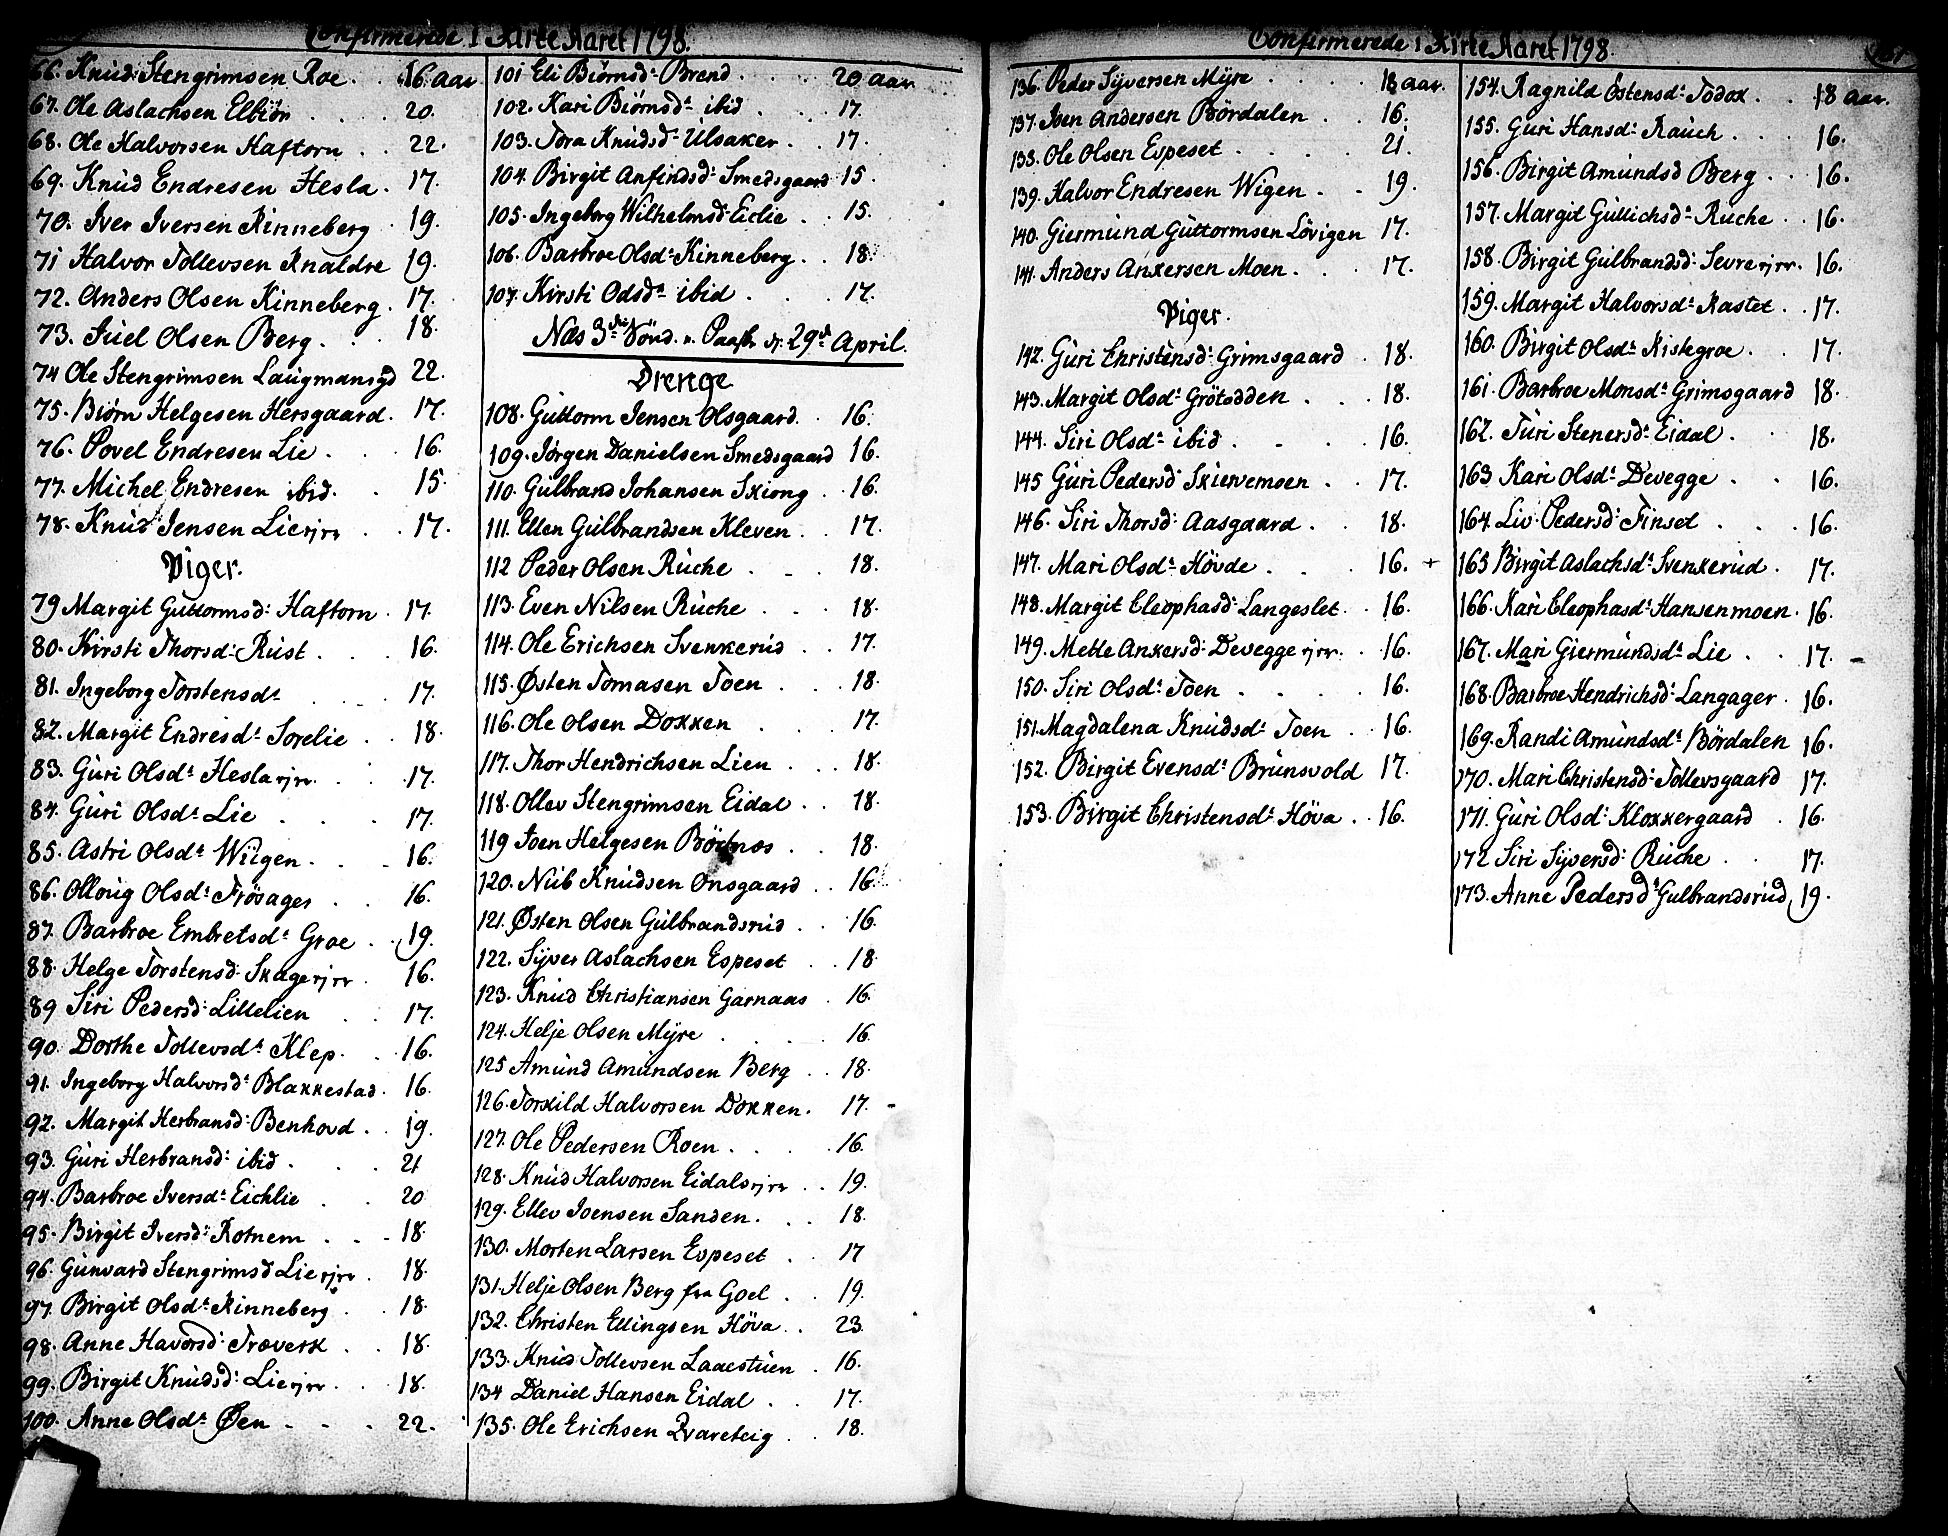 Confirmerede i Kirke Aaret 1798.
66. Knud Stengrimsen Roe . 16. aar
67. Ole Aslachsen Elbiör . . . 20.
68. Ole Halvorsen Haftorn . . 22.
69. Knud Endresen Hesla . 17.
70. Iver Iversen Kinneberg . 19.
71 Halvor Tollevsen Knaldre 19.
72. Anders Olsen Kinneberg . 17.
73. Juel Olsen Berg . . . 18.
74 Ole Stengrimsen Laugmansgd 22.
75. Biörn Helgesen Hersgaard . 17.
76. Povel Endresen Lie . . 16.
77. Michel Endresen ibid. . 15.
78. Knud Jensen Lie ejer . . 17.
Piger.
79 Margit Guttormsd: Haftorn . 17.
80. Kirsti Thorsd: Rust . . 16.
81. Ingeborg Torstensdr . . 17.
82. Margit Endresdr Sorelie . . 18.
83. Guri Olsdr Hesla ejer . . 17.
84. Guri Olsdr Lie . . . 17.
85. Astri Olsdr Wiigen . . . 16.
86. Olloug Olsdr Frösager . . 16.
87. Barbroe Embretsdr Groe . . 19.
88. Helge Torstensd: Skage ejer . 16.
89 Siri Pedersd: Lillelien . . 17.
90. Dorthe Tollevsdr Klep . . 16.
91. Ingeborg Halvorsdr Blakkestad . 16.
92. Margit Herbransd: Benhovd . . 19.
93. Guri Herbransd: ibid . . . 21
94. Barbroe Iversdr Eichlie . . 20
95. Birgit Iversdr Rotnem . . . 18.
96. Gunvard Stengrimsd Lie ejer . 18.
97. Birgit Olsdr Kinneberg . . 18.
98. Anne Havorsd: Træverk . . 18.
99. Birgit Knudsd: Lie ejer . . 18.
100. Anne Olsdr Øen . . . 22.
101 Eli Biörnsdr Brend . . . 20 aar
102. Kari Biörnsdr ibid . . . 17.
103. Tora Knudsdr Ulsaker . . 17.
104. Birgit Anfindsd: Smedsgaard 15.
105. Ingeborg Wilhelmsdr Eclie . . 15.
106. Barbroe Olsdr Kinneberg . . 18.
107. Kirsti Odsdr ibid . . . 17.
Næs 3die Sönd. p. Paaske d. 29de April.
Drenge
108. Guttorm Jensen Olsgaard . 16.
109. Jörgen Danielsen Smedsgaard 16.
110. Gulbrand Johansen Skiong . 16.
111. Ellen Gulbrandsen Kleven . . 17.
112 Peder Olsen Ruche . . . 18.
113. Even Nilsen Ruche . . . 18.
114. Ole Erichsen Svenkerud . . 17.
115. Østen Tomasen Toen . . . 18.
116. Ole Olsen Dokken . . 17.
117. Thor Hendrichsen Lien . . . 18.
118. Ollev Stengrimsen Eidal . . 18.
119 Joen Helgesen Börtnæs . . 18.
120. Niib Knudsen Onsgaard . . 16.
121. Østen Olsen Gulbrandsrud . . 16.
122. Syver Aslachsen Espeset . . 18.
123. Knud Christiansen Garnaas . 16.
124. Helje Olsen Myre . . . . 16.
125 Amund Amundsen Berg . . 18.
126. Torkild Halvorsen Dokken . 17. -
127. Ole Pedersen Roen . . . . 16.
128. Knud Halvorsen Eidals ejer . . 19.
129. Ellev Joensen Sanden . . . 18.
130. Morten Larsen Espeset . . 17
131. Helje Olsen Berg fra Goel . . 19.
132. Christen Ellingsen Höva . . 23.
133. Knud Tollevsen Laaestuen . 16.
134 Daniel Hansen Eidal . . 17.
135. Ole Erichsen Qvareteig . . 18.
Confirmerede i Kirke Aaret 1798
136. Peder Syversen Myre . . . 18 aar.
137. Joen Andersen Bördalen . . 16.
138. Ole Olsen Espeset . . . . 21.
139. Halvor Endresen Wigen . . 19.
140. Giermund Guttormsen Lövigen 17.
141. Anders Ankersen Moen . . . 17.
Piger.
142. Guri Christensd: Grimsgaard . 18.
143. Margit Olsdr Grötodden . . . 18.
144. Siri Olsdr ibid . . . . 16.
145 Guri Pedersd Skiervemoen . . 17.
146. Siri Thorsd: Aasgaard . . . 18.
147. Mari Olsdr Hövde . . . 16. +
148. Margit Eleophasd: Langeslet . . 16.
149. Mette Ankersd: Devegge ejer . . 16.
150. Siri Olsdr Toen . . . . 16.
151. Magdalena Knudsdr Toen . . 16.
152. Birgit Evensdr Brunsvold 17.
153. Birgit Christensdr Höva . . 16.
154. Ragnild Östensdr Todok . . 18 aar.
155. Guri Hansdr Rauch . . . 16.
156. Birgit Amundsd Berg . . 16.
157. Margit Gullichsdr Ruche . . 16.
158. Birgit Gulbrandsd: Sevre ejer . 16.
159. Margit Halvorsdr Kastet . . 17.
160. Birgit Olsdr Kistegroe . . 17.
161. Barbroe Monsdr Grimsgaard 18.
162. Turi Stenersdr Eidal . . 18.
163 Kari Olsdr Devegge . . 16.
164. Liv Pedersd: Finset . . . 16.
165 Birgit Aslachsdr Svenkerud . 17.
166. Kari Eleophasdr Hansenmoen . 16.
167. Mari Giermundsdr Lie . . 17. -
168. Barbroe Hendrichsd: Langager . 16.
169. Randi Amundsdr Bördalen 16.
170. Mari Christensd: Tollevsgaard 17.
171. Guri Olsdr Klokkergaard . 16.
172 Siri Syversd: Ruche . . 17.
173. Anne Pedersdr Gulbrandsrud 19.